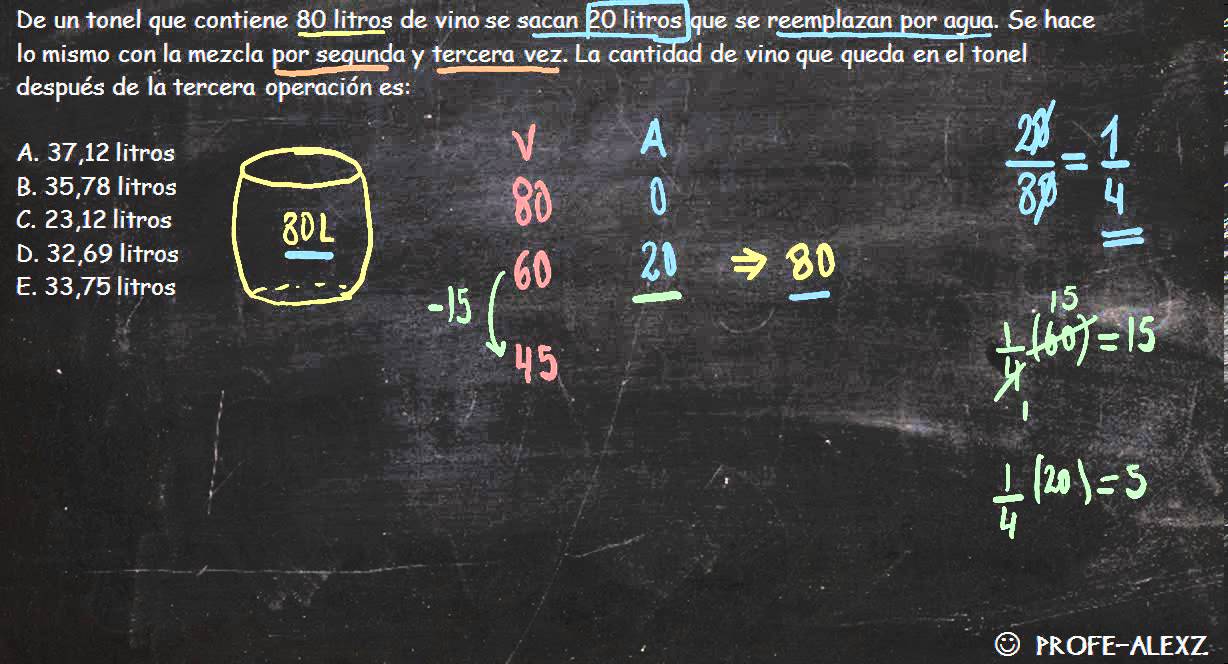 De un tonel que contiene 80 litros de vino se sacan 20 litros que se reemplazan por agua. Se hace
lo mismo con la mezcla por segunda y tercera vez. La cantidad de vino que queda en el tonel
después de la tercera operación es:
A. 37,12 litros
B. 35,78 litros
C. 23,12 litros
D. 32,69 litros
E. 33,75 litros
80L
V A
80 0
60 20 ⇒ 80
-15
45
20/80 = 1/4
15
1/4 (60) = 15
1
1/4 (20) = 5
☺ PROFE-ALEXZ